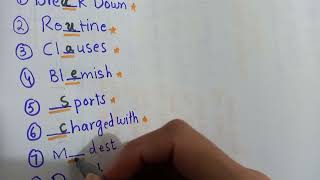 ① Break Down
② Routine
③ Clauses
④ Blemish
⑤ Sports
⑥ Charged with
⑦ M_dest